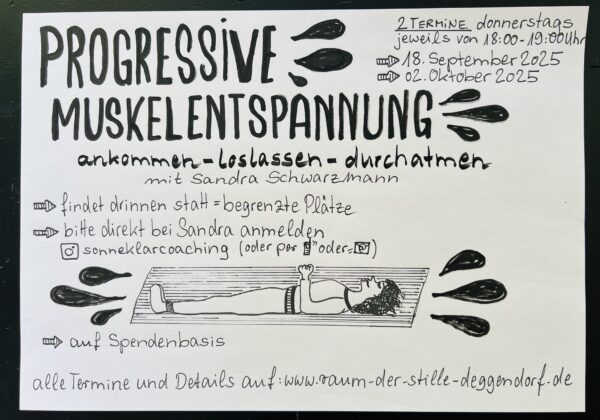 PROGRESSIVE
MUSKELENTSPANNUNG
2 TERMINE donnerstags
jeweils von 18:00-19:00Uhr
18. September 2025
02. Oktober 2025
ankommen - loslassen - durchatmen
mit Sandra Schwarzmann
findet drinnen statt = begrenzte Plätze
bitte direkt bei Sandra anmelden
sonneklarcoaching (oder per oder)
auf Spendenbasis
alle Termine und Details auf: www.raum-der-stille-deggendorf.de